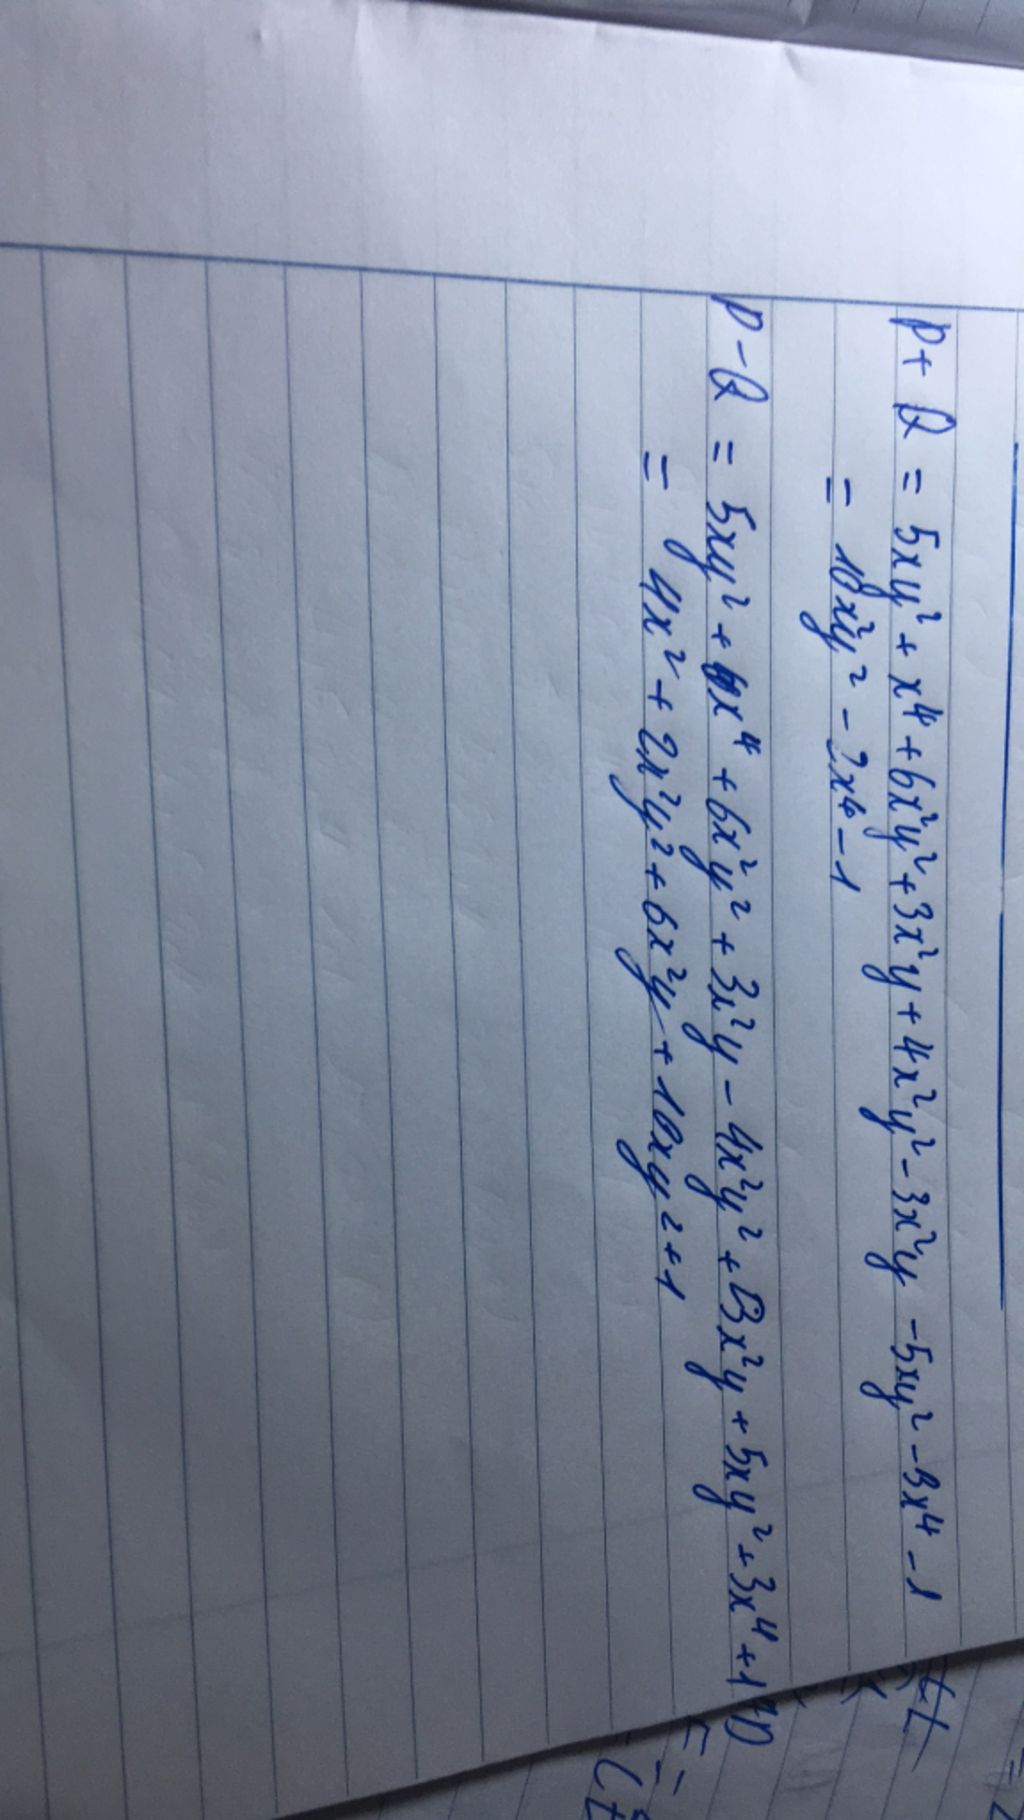 P + Q = 5xy² + x⁴ + 6x²y² + 3x²y + 4x²y² - 3x²y - 5xy² - 3x⁴ - 1
= 10x²y² - 2x⁴ - 1
P - Q = 5xy² + x⁴ + 6x²y² + 3x²y - 4x²y² + 3x²y + 5xy² + 3x⁴ + 1
= 4x² + 2x²y² + 6x²y + 10xy² + 1